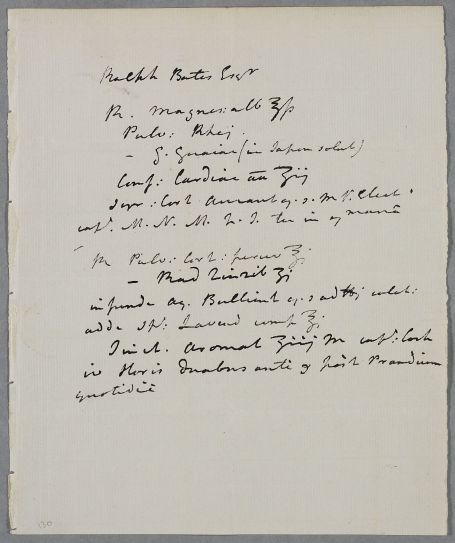 Ralph Bates Esqr
R. Magnes: alb ℥ſs
Pulv: Rhej.
- G. Guaiac (in Sapon solut)
Conf: Cardiac āā ℥ij
Syr: Cort Aurant q. s. M f. Elect.
capt. M. N. M. ter in
R Pulv: Cort: peruv ℥j
- Rad Zinzib ʒj
infunde Aq. Bullient q: s ad ℔j colat:
adde Sp: Lavend comp ℥j
Tinct. Aromat ℥iij M capt: Coch
iv Horis duabus ante & post Prandium
quotidiè
130